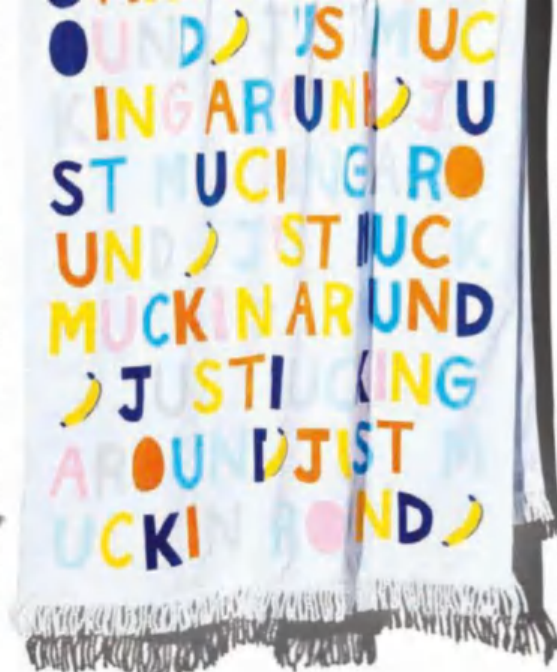 OUND JUS MUC
KINGAROUND JU
ST MUCKINGARO
UND JUST MUCK
MUCKINAROUND
JUSTMUCKING
AROUND JUST M
UCKIN ROND